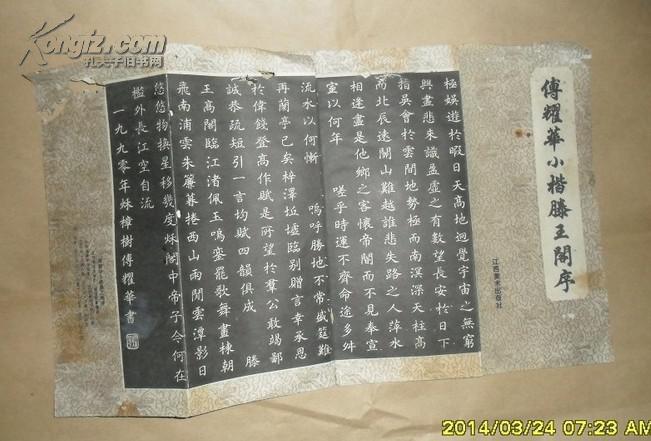 Kongfz.com
孔夫子旧书网
傅耀華小楷滕王閣序
江西美术出版社
極娛遊於暇日天高地迥覺宇宙之無窮
興盡悲來識盈虛之有數望長安於日下
指吳會於雲間地勢極而南溟深天柱高
而北辰遠關山難越誰悲失路之人萍水
相逢盡是他鄉之客懷帝閽而不見奉宣
室以何年 嗟乎時運不齊命途多舛
流水以何慚 嗚呼勝地不常盛筵難
再蘭亭已矣梓澤丘墟臨別贈言幸承恩
於偉餞登高作賦是所望於羣公敢竭鄙
誠恭疏短引一言均賦四韻俱成 滕
王高閣臨江渚佩玉鳴鑾罷歌舞畫棟朝
飛南浦雲朱簾暮捲西山雨閒雲潭影日
悠悠物換星移幾度秋閣中帝子今何在
檻外長江空自流
一九九零年秌樟樹傅耀華書
2014/03/24 07:23 AM